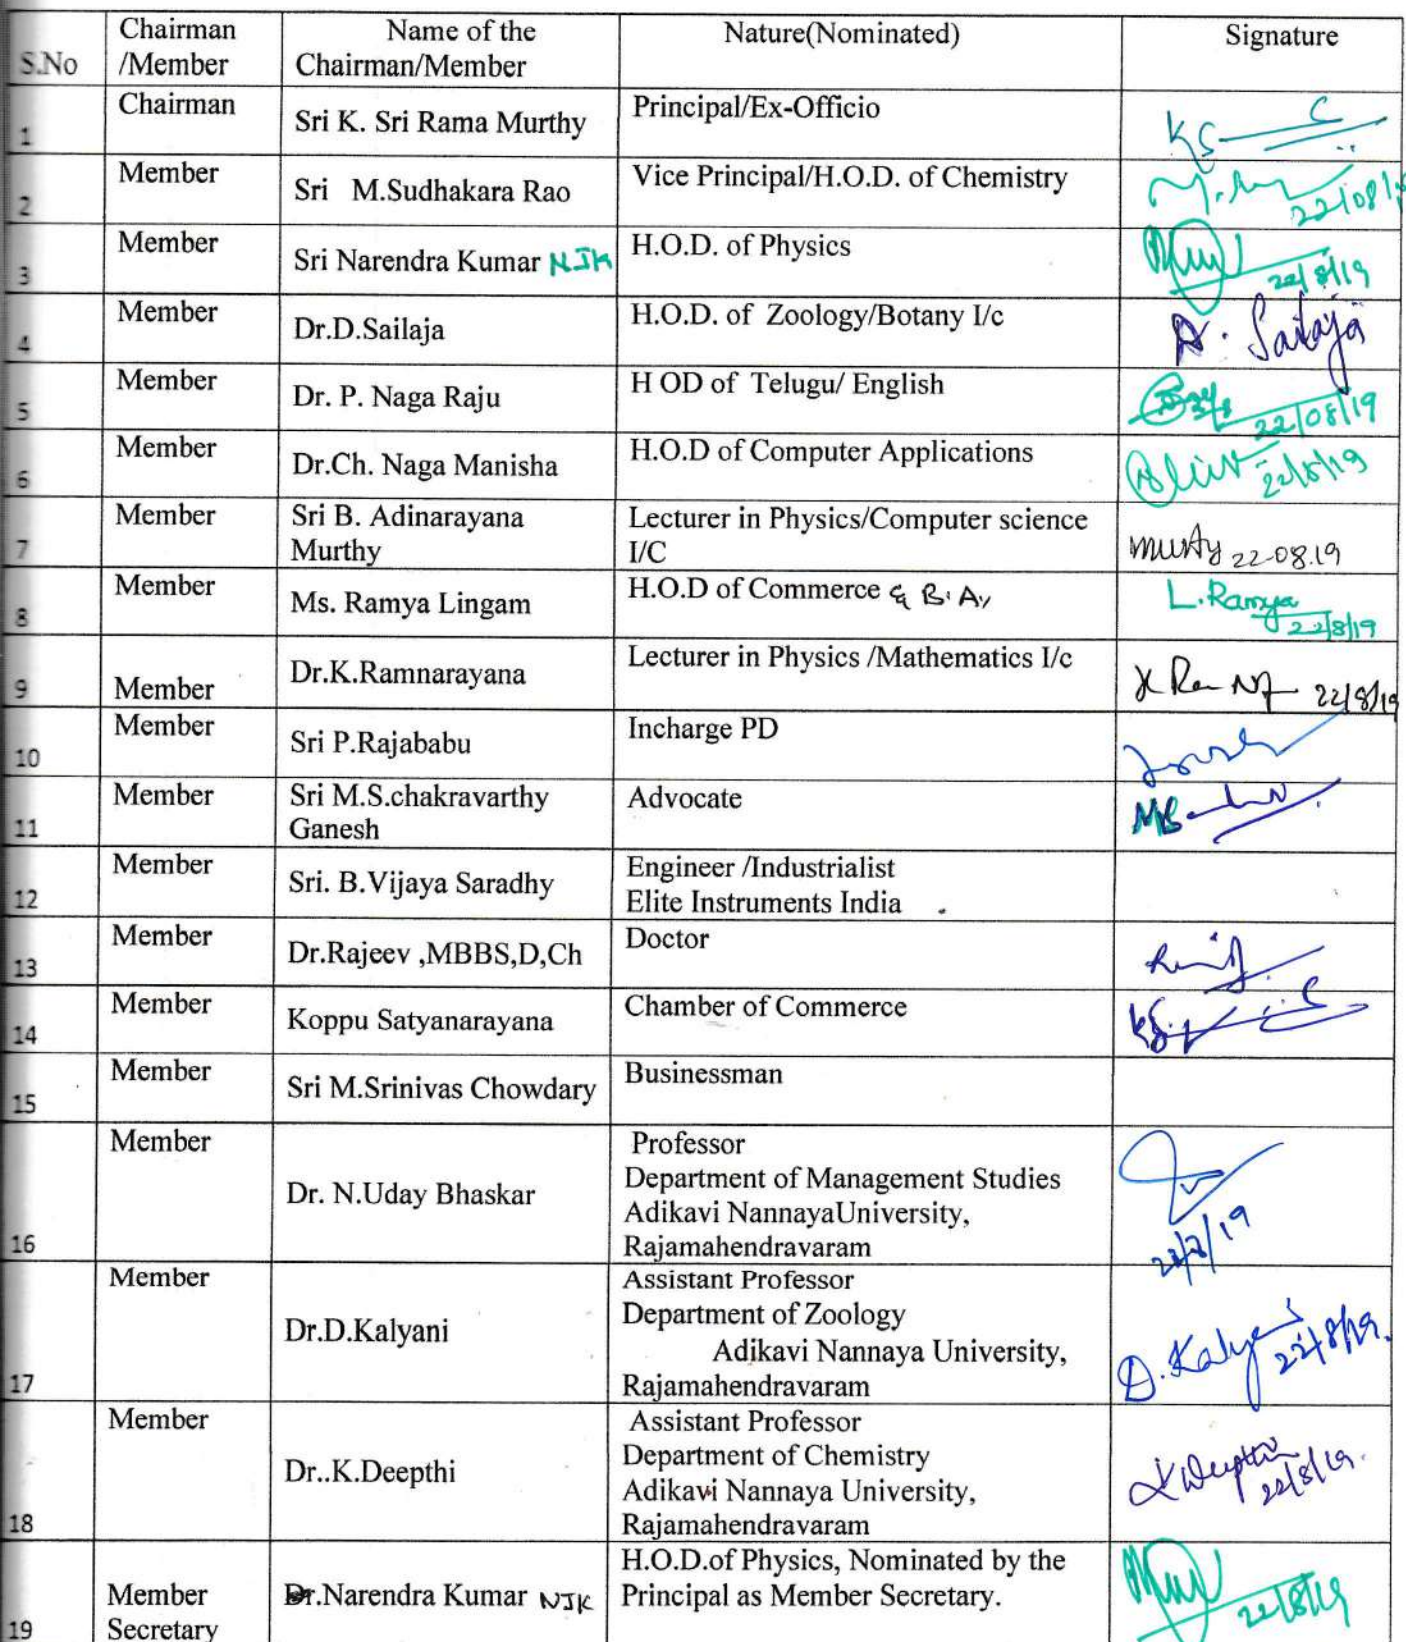 S.No Chairman /Member Name of the Chairman/Member Nature(Nominated) Signature
1 Chairman Sri K. Sri Rama Murthy Principal/Ex-Officio
2 Member Sri M.Sudhakara Rao Vice Principal/H.O.D. of Chemistry 22/08/
3 Member Sri Narendra Kumar NJK H.O.D. of Physics 22/8/19
4 Member Dr.D.Sailaja H.O.D. of Zoology/Botany I/c D. Sailaja
5 Member Dr. P. Naga Raju H OD of Telugu/ English 22/08/19
6 Member Dr.Ch. Naga Manisha H.O.D of Computer Applications 22/8/19
7 Member Sri B. Adinarayana Lecturer in Physics/Computer science
Murthy I/C Murty 22-08.19
8 Member Ms. Ramya Lingam H.O.D of Commerce & B.A, L.Ramya
22/8/19
9 Member Dr.K.Ramnarayana Lecturer in Physics /Mathematics I/c 22/8/19
10 Member Sri P.Rajababu Incharge PD
11 Member Sri M.S.chakravarthy Advocate
Ganesh
12 Member Sri. B.Vijaya Saradhy Engineer /Industrialist
Elite Instruments India
13 Member Dr.Rajeev ,MBBS,D,Ch Doctor
14 Member Koppu Satyanarayana Chamber of Commerce
15 Member Sri M.Srinivas Chowdary Businessman
16 Member Dr. N.Uday Bhaskar Professor
Department of Management Studies
Adikavi NannayaUniversity,
Rajamahendravaram
17 Member Dr.D.Kalyani Assistant Professor
Department of Zoology
Adikavi Nannaya University, D. Kalyani 22/8/19.
Rajamahendravaram
18 Member Dr..K.Deepthi Assistant Professor
Department of Chemistry
Adikavi Nannaya University, K Deepthi 22/8/19.
Rajamahendravaram
19 Member Secretary Dr.Narendra Kumar NJK H.O.D.of Physics, Nominated by the
Principal as Member Secretary. 22/8/19